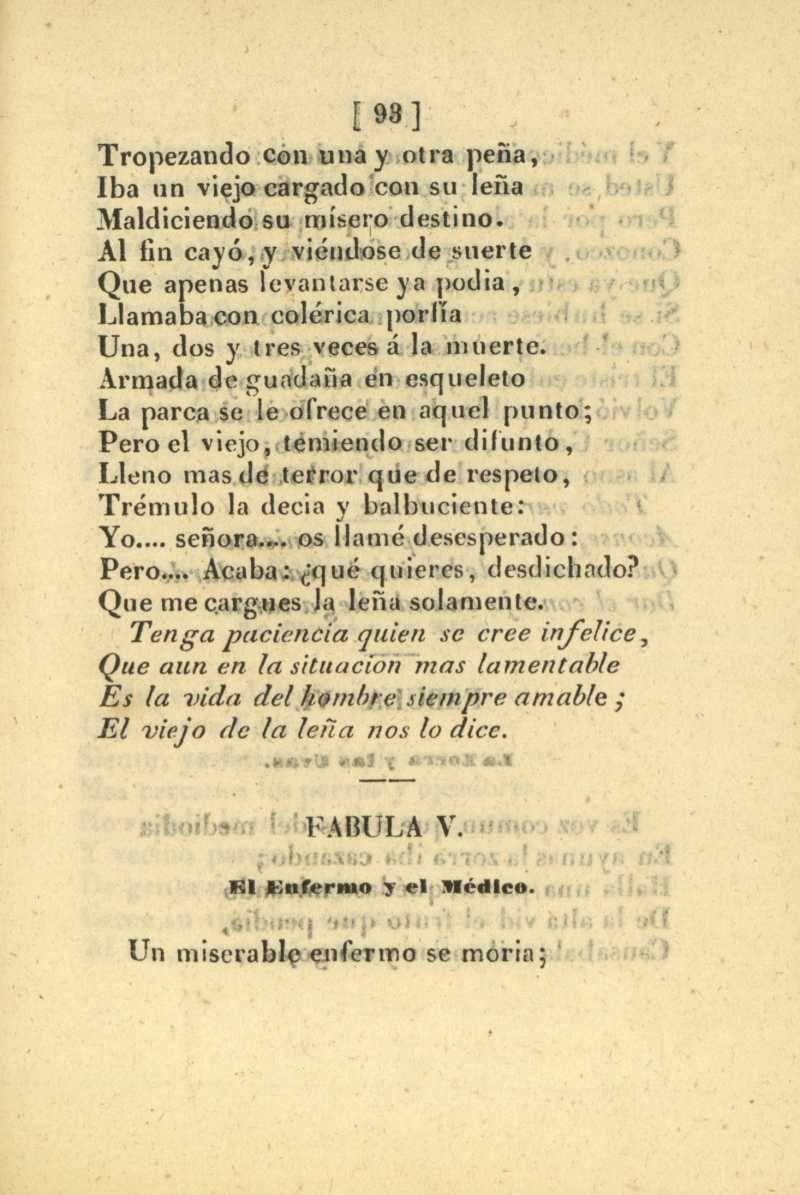 [ 93 ]
Tropezando con una y otra peña,
Iba un viejo cargado con su leña
Maldiciendo su mísero destino.
Al fin cayó, y viéndose de suerte
Que apenas levantarse ya podia,
Llamaba con colérica porfía
Una, dos y tres veces á la muerte.
Armada de guadaña en esqueleto
La parca se le ofrece en aquel punto;
Pero el viejo, temiendo ser difunto,
Lleno mas de terror que de respeto,
Trémulo la decia y balbuciente:
Yo.... señora.... os llamé desesperado:
Pero.... Acaba: ¿qué quieres, desdichado?
Que me cargues la leña solamente.
Tenga paciencia quien se cree infelice,
Que aun en la situacion mas lamentable
Es la vida del hombre siempre amable;
El viejo de la leña nos lo dice.
FABULA V.
El Enfermo y el Médico.
Un miserable enfermo se moria;